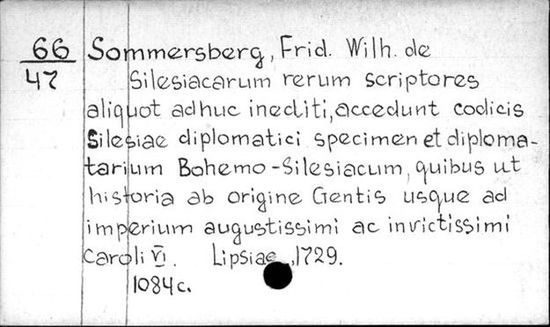 66 Sommersberg, Frid. Wilh. de
47 Silesiacarum rerum scriptores
aliquot adhuc inediti, accedunt codicis
Silesiae diplomatici specimen et diploma-
tarium Bohemo-Silesiacum, quibus ut
historia ab origine Gentis usque ad
imperium augustissimi ac invictissimi
Caroli VI. Lipsiae, 1729.
1084c.